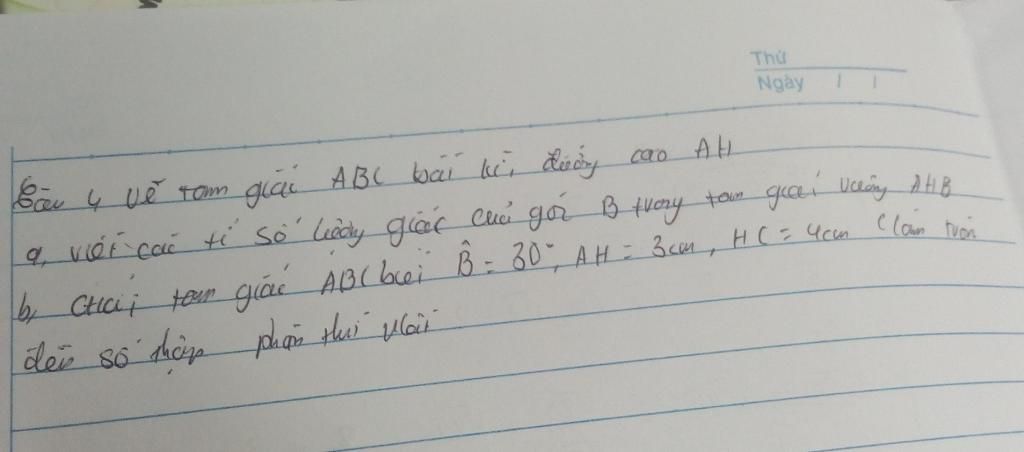 Thứ
Ngày / /
Câu 4 vẽ tam giác ABC bất kì, đường cao AH
a, viết các tỉ số lượng giác của góc B trong tam giác vuông AHB
b, Giải tam giác ABC biết B̂ = 30°, AH = 3cm, HC = 4cm (làm tròn
đến số thập phân thứ